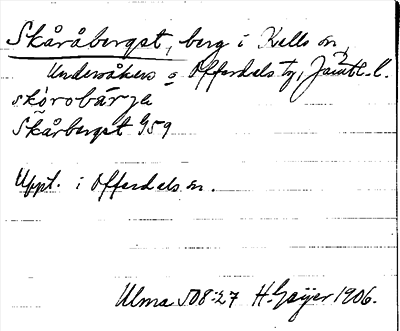 Skåråbergst, berg i Kalls sn,
Undersåkers o Offerdals tg, Jämtl. l.
skòrobärje
Skårbergst G59
Uppt. i Offerdals sn.
Ulma 508:27 H. Geijer 1906.